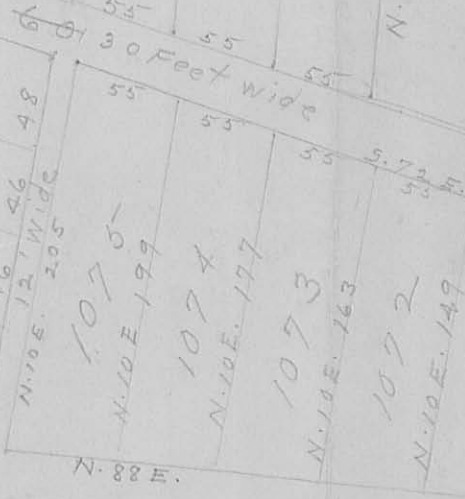 55
55
55
N.
60
30 Feet wide
55
55
55
S. 72 E.
55
48
46
12' Wide
N. 10 E. 205
1075
N. 10 E 199
1074
N. 10 E. 177
1073
N. 10 E. 163
1072
N. 10 E. 149
N. 88 E.